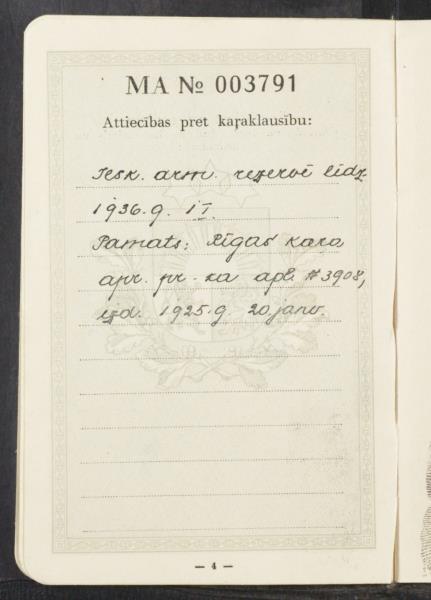 MA № 003791
Attiecības pret kaŗaklausību:
Iesk. arm. rezervē līdz
1936.g. 1/I.
Pamats: Rīgas kara
apr. pr-ka apl. #3908,
izd. 1925.g. 20.janv.
— 4 —